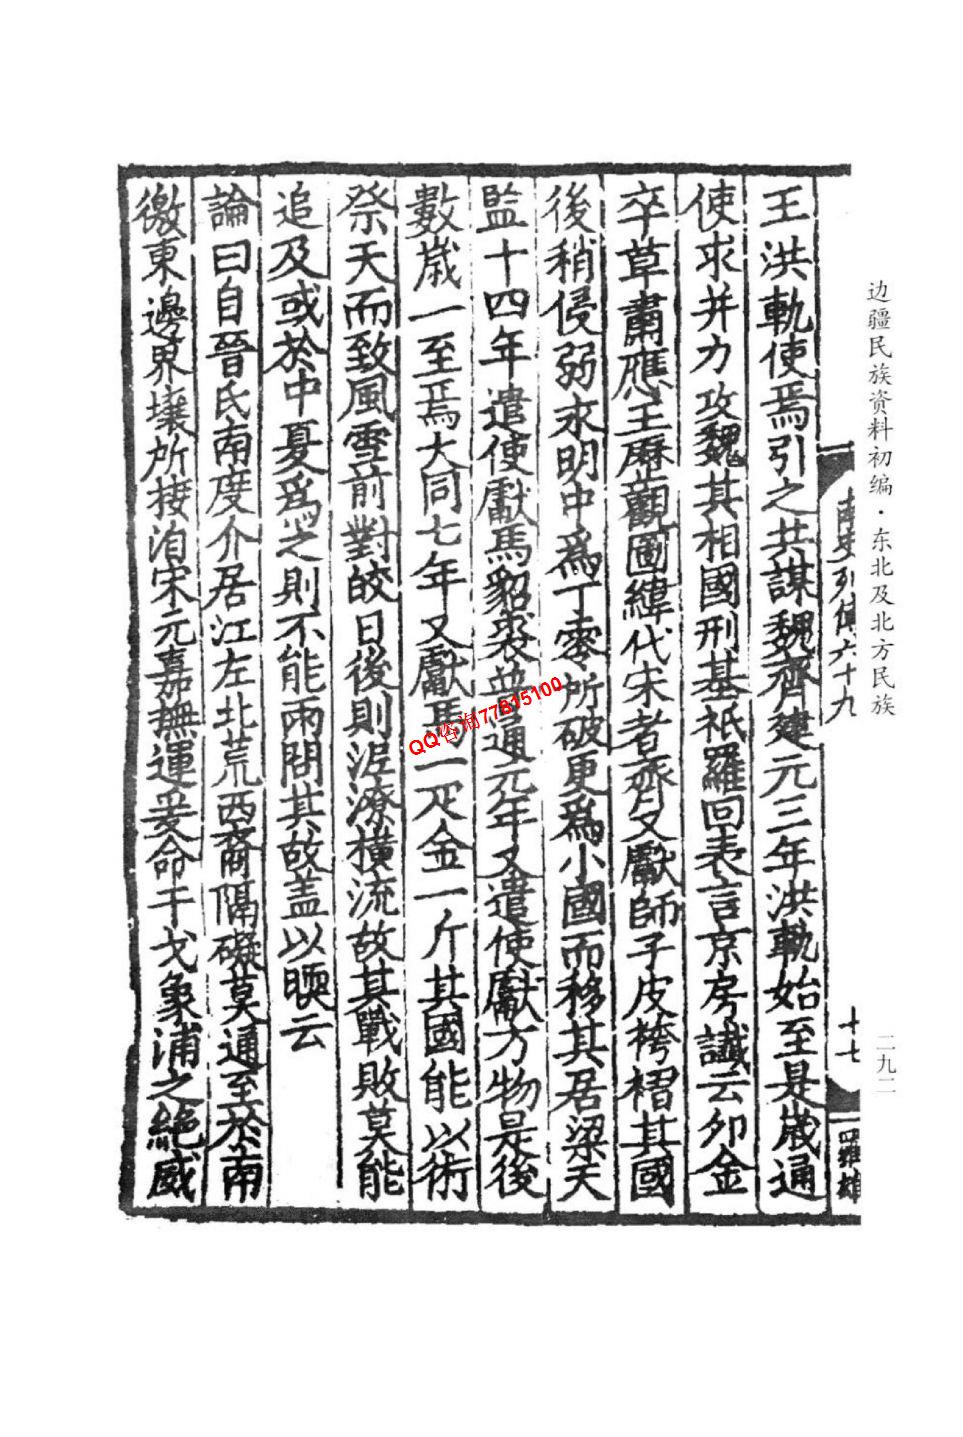 边疆民族资料初编·东北及北方民族
二九二
南史列傳六十九
十七
羅雄
王洪軌使焉引之共謀魏齊建元三年洪軌始至是歲通
使求并力攻魏其相國刑基祇羅回表言京房讖云卯金
卒草肅應王厤觀圖緯代宋者齊又獻師子皮袴褶其國
後稍侵弱永明中爲丁零所破更爲小國而移其居梁天
監十四年遣使獻馬貂裘普通元年又遣使獻方物是後
數歲一至焉大同七年又獻馬一疋金一斤其國能以術
祭天而致風雪前對皎日後則泥潦橫流故其戰敗莫能
追及或於中夏爲之則不能雨問其故盖以暖云
論曰自晉氏南度介居江左北荒西裔隔礙莫通至於南
徼東邊界壤所接洎宋元嘉撫運爰命干戈象浦之絕威
QQ咨询77815100